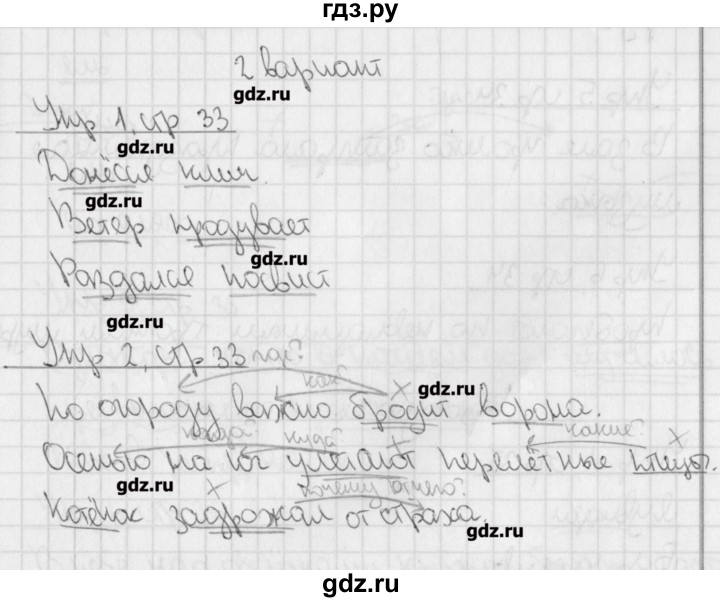 гдз.ру
2 вариант
gdz.ru
Упр 1, стр 33
gdz.ru
Донёсся клич.
gdz.ru
Ветер продувает
gdz.ru
Раздался посвист
gdz.ru
Упр 2, стр 33 где?
как?
gdz.ru
По огороду важно бродит ворона.
когда? куда? какие?
Осенью на юг улетают перелётные птицы.
gdz.ru
почему? отчего?
Котёнок задрожал от страха.
gdz.ru
gdz.ru